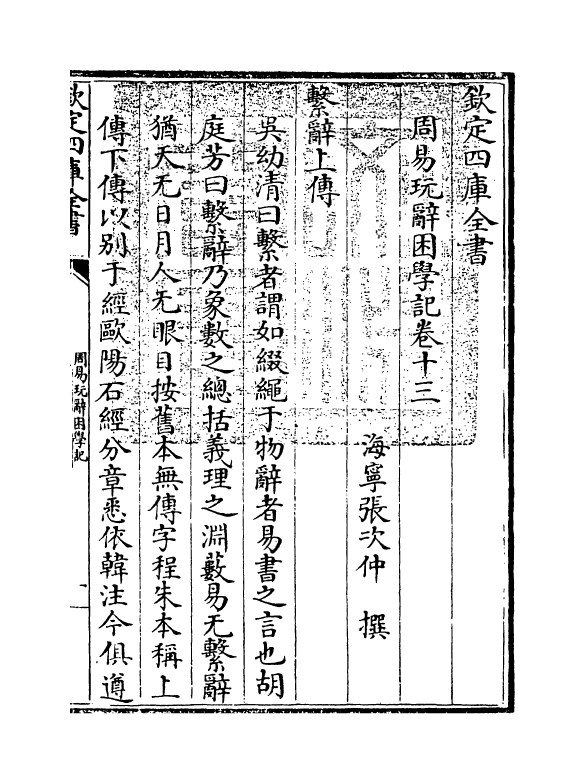 欽定四庫全書
周易玩辭困學記卷十三
海寧張次仲　撰
繫辭上傳
吳幼清曰繫者謂如綴繩于物辭者易書之言也胡
庭芳曰繫辭乃象數之總括義理之淵藪易无繫辭
猶天无日月人无眼目按舊本無傳字程朱本稱上
傳下傳以別于經歐陽石經分章悉依韓注今俱遵
欽定四庫全書
周易玩辭困學記
一